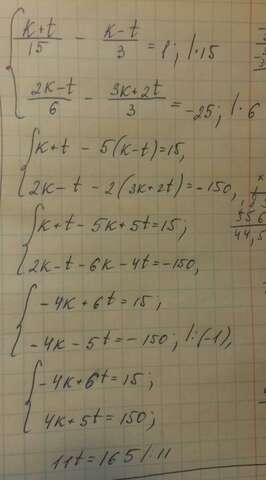 (k+t)/15 - (k-t)/3 = 1; |·15
(2k-t)/6 - (3k+2t)/3 = -25; |·6
k+t - 5(k-t)=15,
2k-t - 2(3k+2t)=-150,
k+t-5k+5t=15;
2k-t-6k-4t=-150,
-4k+6t=15;
-4k-5t=-150; |·(-1),
-4k+6t=15;
4k+5t=150;
11t=165|:11
556
44,5